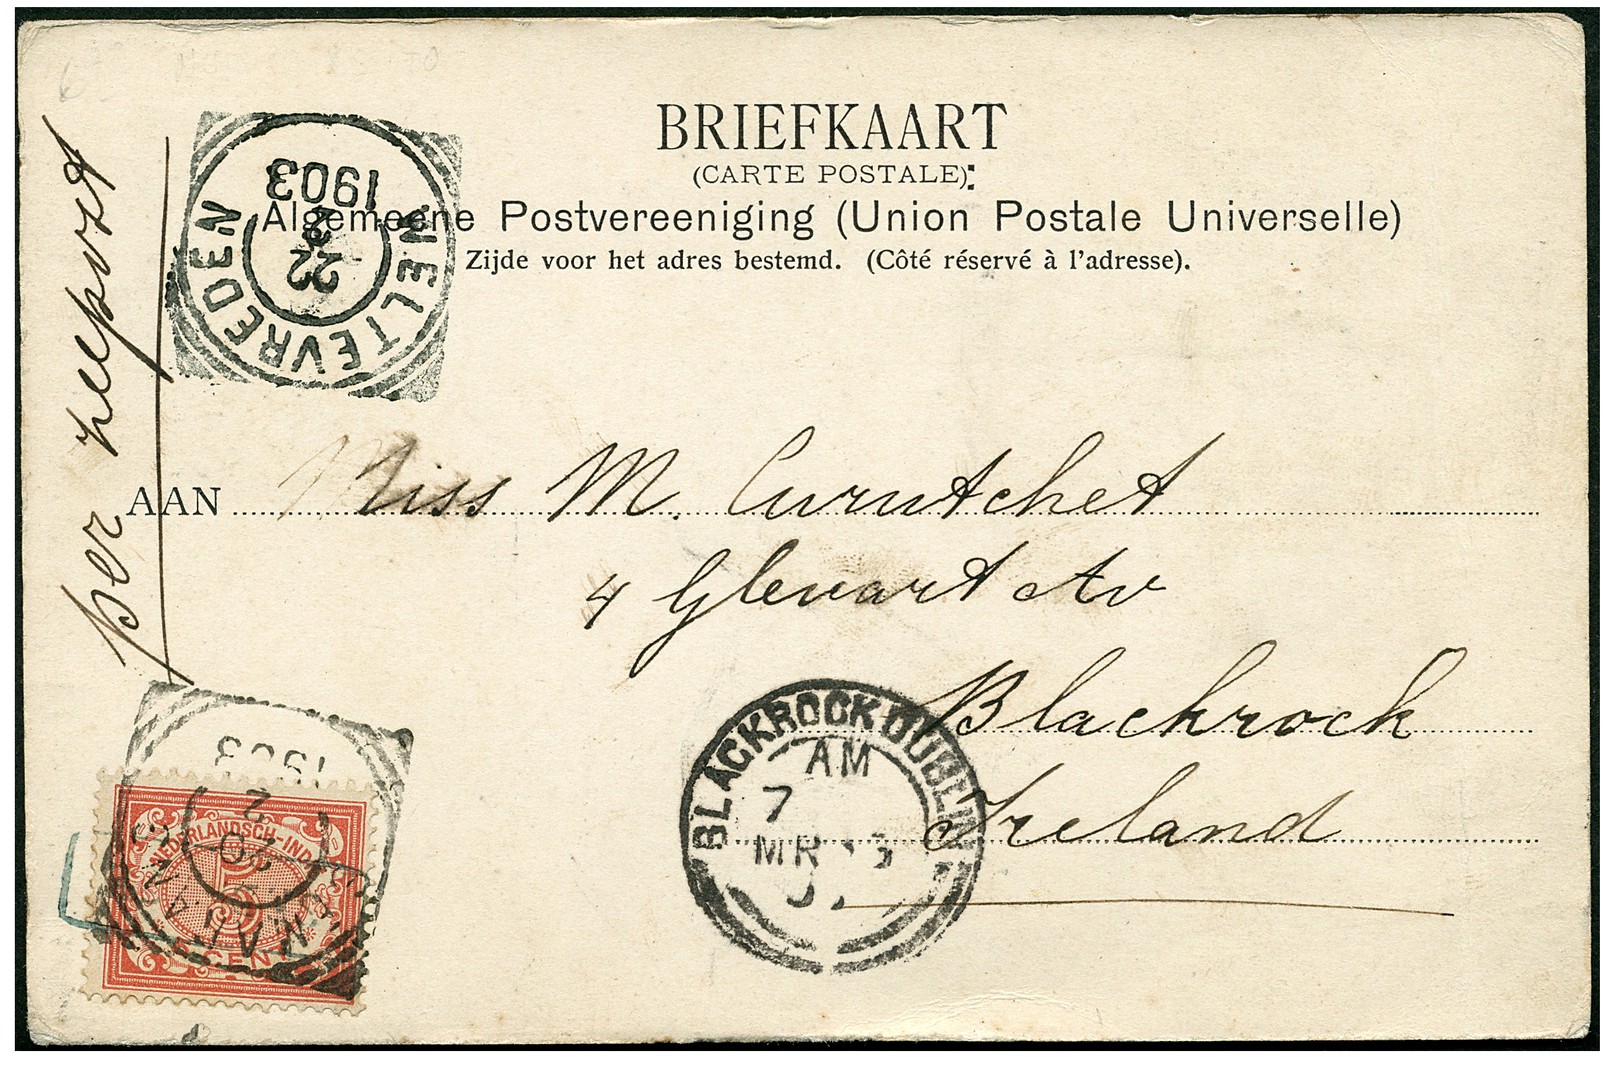 BRIEFKAART
(CARTE POSTALE):
Algemeene Postvereeniging (Union Postale Universelle)
Zijde voor het adres bestemd. (Côté réservé à l'adresse).
WELTEVREDEN
1903
per zeepost
AAN Miss M. Curutchet
4 Glenart Av
Blackrock
Ireland
BLACKROCK DUBLIN
AM
7
MR
1903
NEDERLANDSCH-INDIË
5
CENT